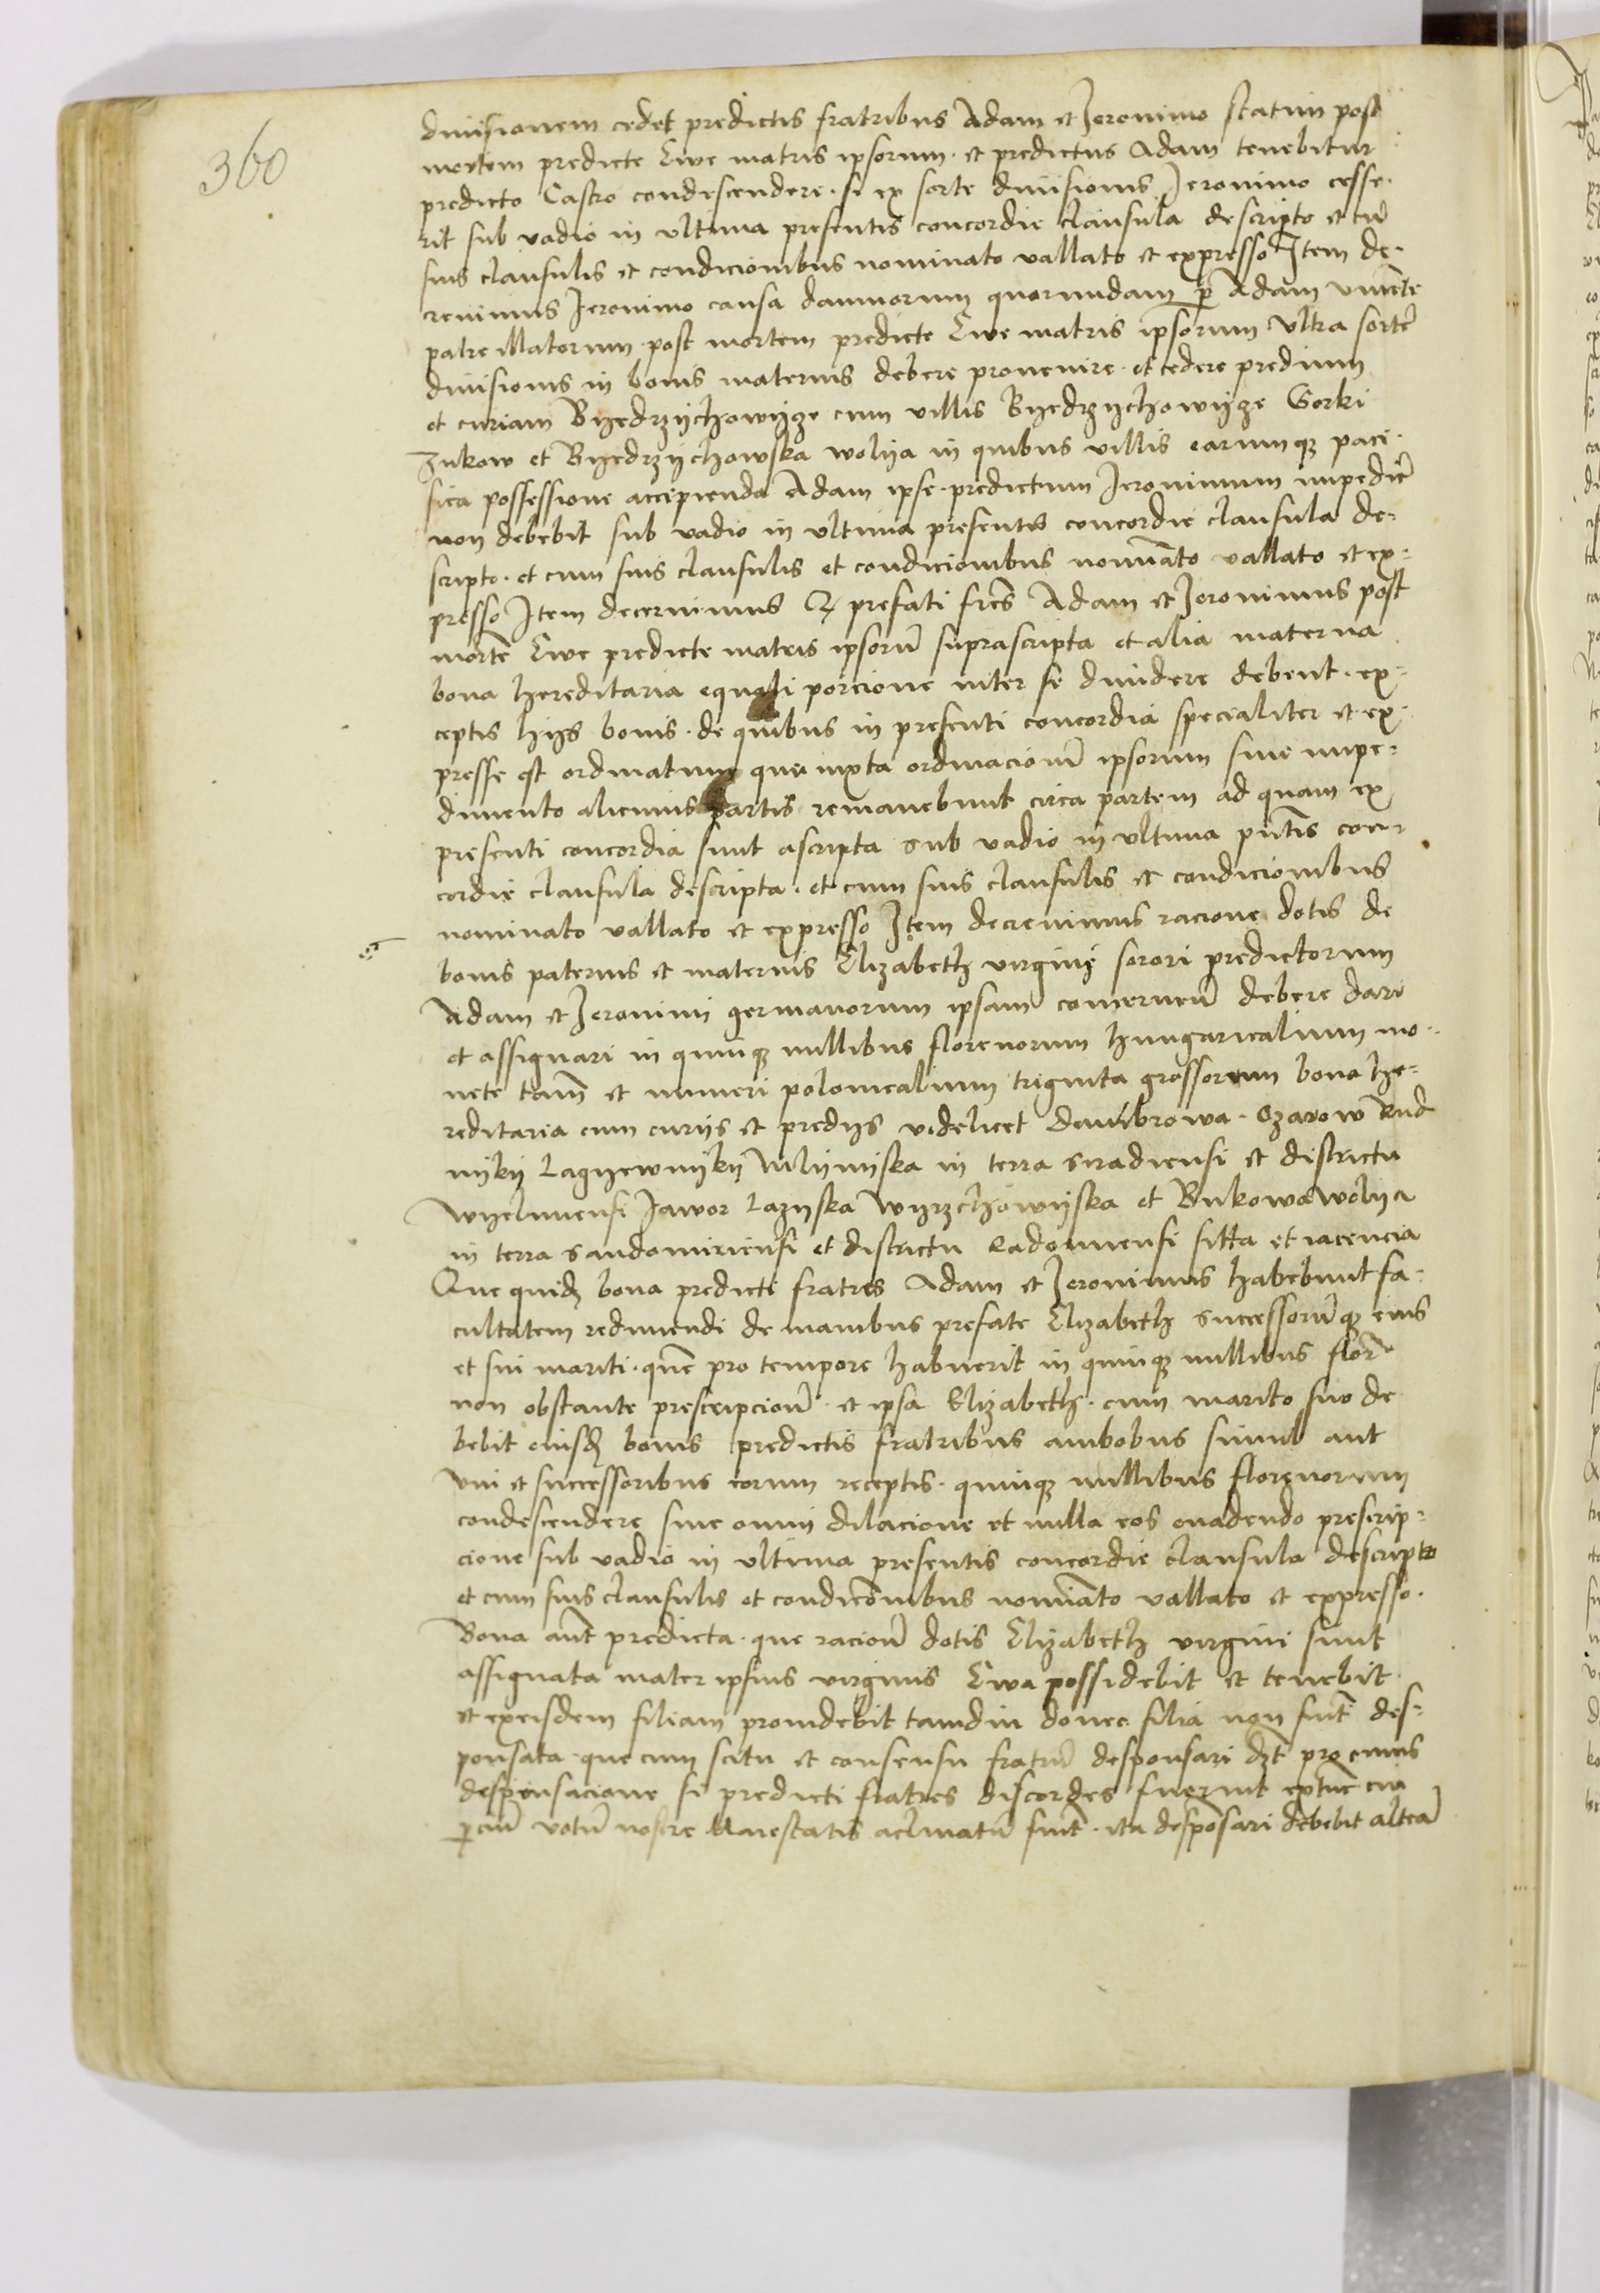 360
diuisionem cedet predictis fratribus Adam et Jeronimo statim post
mortem predicte Ewe matris ipsorum · et predictus Adam tenebitur
predicto Castro condescendere · si ex sorte diuisionis Jeronimo cesse-
rit sub vadio in vltima presentis concordie clausula descripto et cū
suis clausulis et condicionibus nominato vallato et expresso Item de-
creuimus Jeronimo causa damnorum quorundam p Adam viuēte
patre illatorum · post mortem predicte Ewe matris ipsorum vltra sortē
diuisionis in bonis maternis debere prouenire · et cedere predium
et curiam Byedrzychowycze cum villis Byedrzychowycze Gorki
Zukow et Byedrzychowska wolya in quibus villis earumqz paci-
fica possessione accipienda Adam ipse · predictum Jeronimum impedir
non debebit sub vadio in vltima presentis concordie clausula de-
scripto · et cum suis clausulis et condicionibus nomiāto vallato et ex-
presso Item decernimus Qz prefati frēs Adam et Jeronimus post
mortē Ewe predicte matris ipsorū suprascripta et alia materna
bona hereditaria equali porcione inter se diuidere debent · ex-
ceptis hijs bonis · de quibus in presenti concordia specialiter et ex-
presse est ordinatum que iuxta ordinacionē ipsorum sine impe-
dimento alicuius partis remanebunt circa partem ad quam ex
presenti concordia sunt ascripta sub vadio in vltima pntīs con-
cordie clausula descripta · et cum suis clausulis et condicionibus
nominato vallato et expresso Item decreuimus racione dotis de
bonis paternis et maternis Elizabeth virgini sorori predictorum
Adam et Jeronimi germanorum ipsam concernen̄ debere dari
et assignari in quinqz millibus florenorum hungaricalium mo-
nete tam̄ et numeri polonicalium triginta grossorum bona he-
reditaria cum curijs et predijs videlicet Dambrowa · Ozarow Rud
nyky Lagyewnyky Mlyynyska in terra Siradiensi et districtu
Wyelunensi Jawor Lazyska Wyrzchowyska et Bukowa wolya
in terra Sandomiriensi et districtu Radomiensi sitta et iacencia
Que quidz bona predicti fratres Adam et Jeronimus habebunt fa-
cultatem redimendi de manibus prefate Elizabeth successorūqz eius
et sui mariti · quē pro tempore habuerit in quinqz millibus flor̄
non obstante prescripcionē · et ipsa Elizabeth · cum marito suo de
bebit eiisdz bonis predictis fratribus ambobus simul aut
vni et successoribus eorum receptis · quinqz millibus florenorum
condescendere sine omni dilacione et nulla eos euadendo prescrip-
cione sub vadio in vltima presentis concordie clausula descripto
et cum suis clausulis et condicōnibus nomiāto vallato et expresso ·
Bona aut̄ predicta · que racionē dotis Elizabeth virgini sunt
assignata mater ipsius virginis Ewa possidebit et tenebit
et ex eisdem filiam prouidebit tamdiu donec filia non fuit̄ des-
ponsata · que cum scitu et consensu fratrū desponsari dz̄t pro cuius
desponsacione si predicti fratres discordes fuerint extūc cui
parciū votū nostre Maiestatis aclinatū fuit̄ · ita desponsari debebit alteā